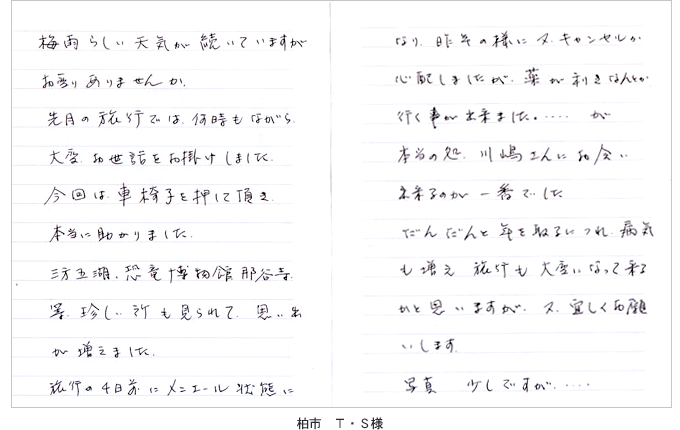 梅雨らしい天気が続いていますが
お変りありませんか。
先月の旅行では、何時もながら、
大変お世話をお掛けしました。
今回は、車椅子を押して頂き、
本当に助かりました。
三方五湖、恐竜博物館、那谷寺、
等、珍しい所も見られて、思い出
が増えました。
旅行の4日前にメニエール状態に
なり、昨年の様に又、キャンセルか
心配しましたが、薬が利きなんとか
行く事が出来ました。・・・・ が
本当の処、川嶋さんにお会い
出来るのが一番でした
だんだんと年を取るにつれ、病気
も増え 旅行も大変になって来る
かと思いますが、又、宜しくお願
いします。
写真 少しですが、・・・・
柏市 T・S様